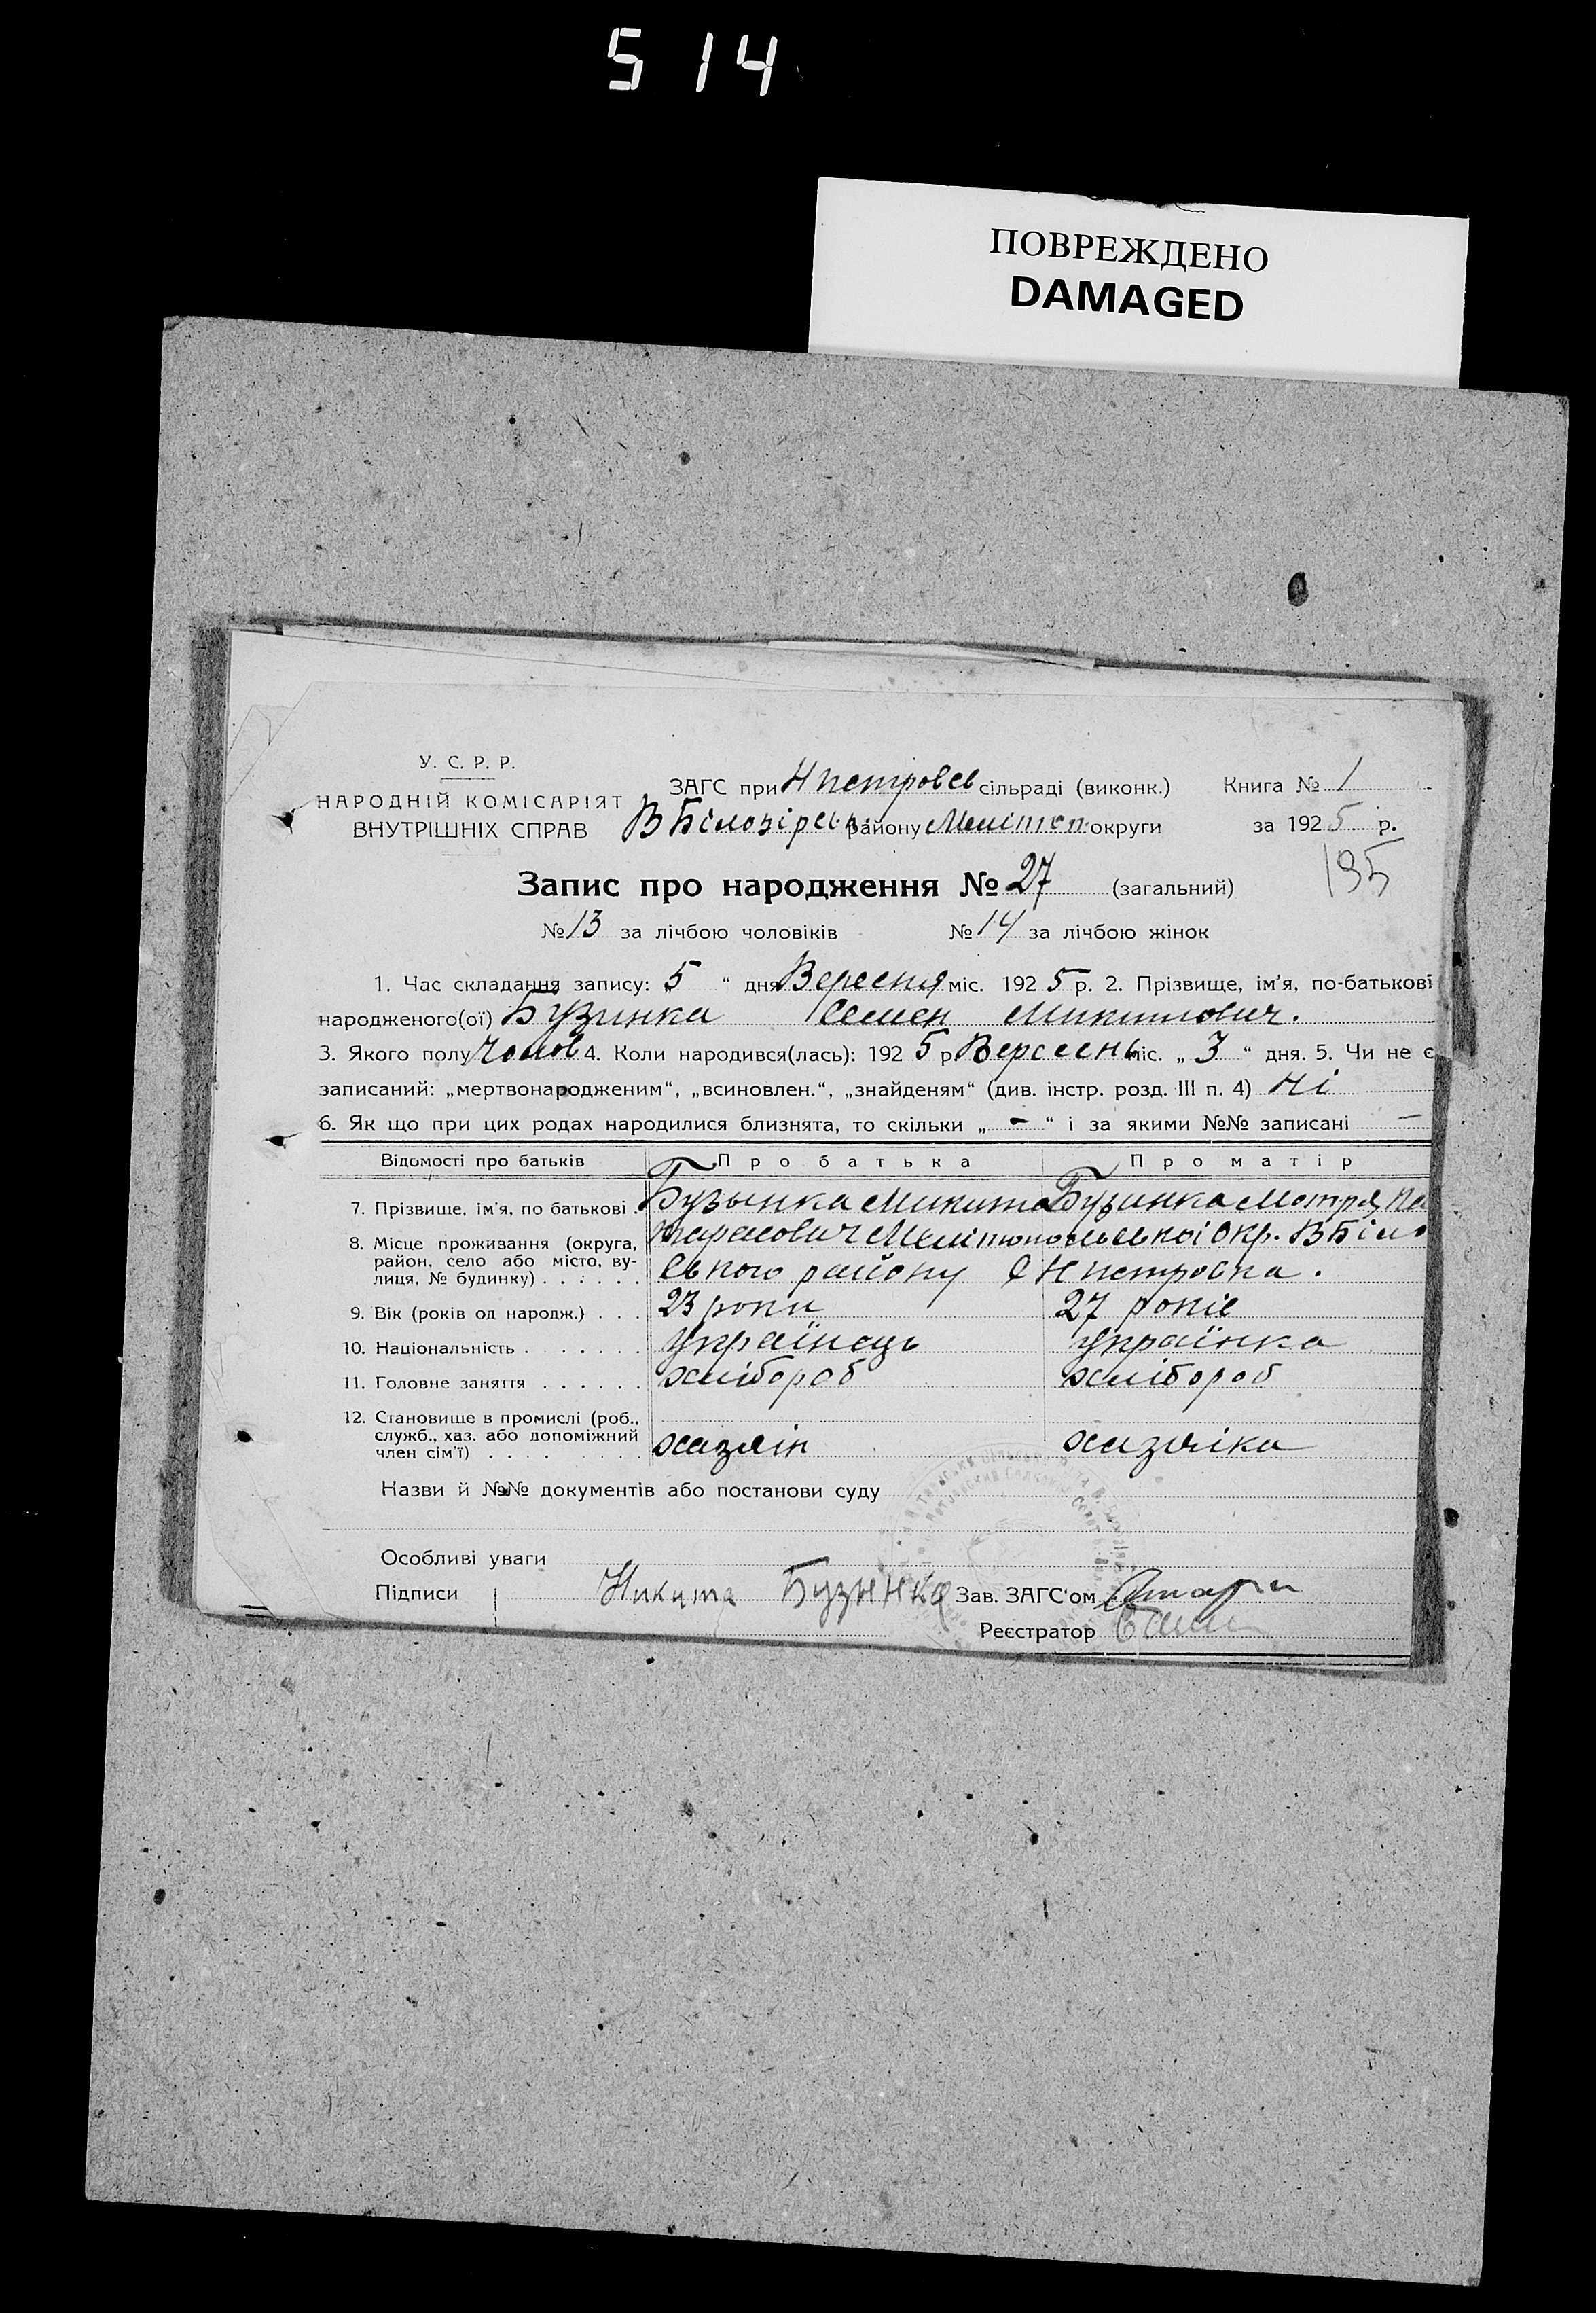 514
ПОВРЕЖДЕНО
DAMAGED
У. С. Р. Р.
НАРОДНІЙ КОМІСАРІЯТ
ВНУТРІШНІХ СПРАВ
ЗАГС при Н петровсь сільраді (виконк.) Книга № 1
В Білозірськ району Мелітоп. округи за 1925 р.
195
Запис про народження № 27 (загальний)
№ 13 за лічбою чоловіків № 14 за лічбою жінок
1. Час складання запису: „5“ дня Вересня міс. 1925 р. 2. Прізвище, ім'я, по-батькові
народженого(ої) Бузинка Семен Микитович.
3. Якого полу Чолов 4. Коли народився(лась): 1925 р. Вересень міс. „3“ дня. 5. Чи не є
записаний: „мертвонародженим“, „всиновлен.“, „знайденям“ (див. інстр. розд. III п. 4) Ні
6. Як що при цих родах народилися близнята, то скільки „-“ і за якими №№ записані —
Відомості про батьків Про батька Про матір
7. Прізвище, ім'я, по батькові . Бузынка Микита Бузинка Мотря
8. Місце проживання (округа, район, село або місто, вулиця, № будинку) . . . . . . Тарасович Мелітопольської Окр. В Біло
ського району С Н петровка.
9. Вік (років од народж.) . . . 23 роки 27 років
10. Національність . . . . . . . Українець Українка
11. Головне заняття . . . . . . хлібороб хлібороб
12. Становище в промислі (роб., служб., хаз. або допоміжний член сім'ї) . . . . хазяін хазяіка
Назви й №№ документів або постанови суду
Особливі уваги
Підписи Никита Бузынка Зав. ЗАГС'ом
Реєстратор